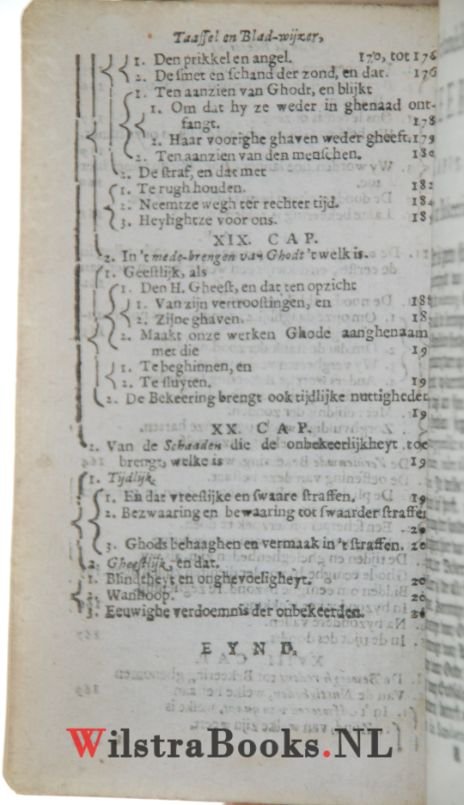 Taaffel en Blad-wijzer,
1. Den prikkel en angel. 170, tot 176
2. De smet en schand der zond, en dat. 176
1. Ten aanzien van Ghodt, en blijkt
1. Om dat hy ze weder in ghenaad ont-
fangt. 178
2. Haar voorighe ghaven weder gheeft. 179
2. Ten aanzien van den menschen. 180
2. De straf, en dat met
1. Te rugh houden. 182
2. Neemtze wegh ter rechter tijd. 18
3. Heylightze voor ons. 18
XIX. CAP.
2. In 't mede-brengen van Ghodt 't welk is.
1. Geestlijk, als
1. Den H. Gheest, en dat ten opzicht
1. Van zijn vertroostingen, en 18
2. Zijne ghaven. 18
2. Maakt onze werken Ghode aanghenaam
met die 19
1. Te beghinnen, en
2. Te sluyten. 19
2. De Bekeering brengt ook tijdlijke nuttigheden
19
XX. CAP.
2. Van de Schaaden die de onbekeerlijkheyt toe
brengt, welke is 19
1. Tijdlijk,
1. En dat vreeslijke en swaare straffen. 19
2. Bezwaaring en bewaaring tot swaarder straffen
20
3. Ghods behaaghen en vermaak in 't straffen. 20
2. Gheestlijk, en dat.
1. Blindtheyt en onghevoeligheyt. 20
2. Wanhoop. 20
3. Eeuwighe verdoemnis der onbekeerden. 20
EYND.
WilstraBooks.NL